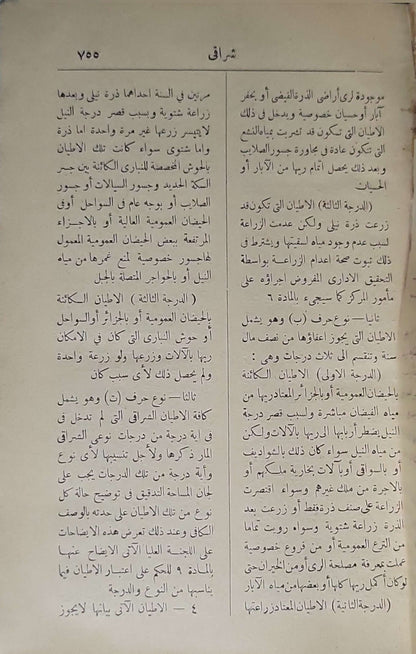 شراقى
٧٥٥
موجودة لرى أراضى الذرة القيضى أو بحفر
آبار أو حسيان خصوصية ويدخل فى ذلك
الاطيان التى تتكون قد تشربت بمياه النشع
التى تتكون عادة فى مجاورة جسور الصلايب
وبعد ذلك يحصل اتمام ريها من الآبار أو
الحسيان
(الدرجة الثالثة) الاطيان التى تكون قد
زرعت ذرة نيلى ولكن عدمت الزراعة
لسبب عدم وجود مياه لسقيتها ويشترط فى
ذلك ثبوت صحة اعدام الزراعة بواسطة
التحقيق الادارى المفروض اجراؤه على
مأمور المركز كما سيجىء بالمادة ٦
ثانيا – نوع حرف (ب) وهو يشمل
الاطيان التى يجوز اعفاؤها من نصف مال
سنة وتنقسم الى ثلاث درجات وهى :
(الدرجة الاولى) الاطيان الكائنة
بالحيضان العمومية أو بالجزائر المعتاد ريها من
مياه الفيضان مباشرة ولسبب قصر درجة
النيل يضطر أربابها الى ريها بالآلات ولكن
من مياه النيل سواء كان ذلك بالشواديف
أو بالسواقى أو بآلات بخارية ملكهم أو
بالاجرة من ملك غيرهم وسواء اقتصرت
الزراعة على صنف ذرة فقط أو زرعت بعد
الذرة زراعة شتوية وسواء رويت تماما
من الترع العمومية أو من فروع خصوصية
عملت بمعرفة مصلحة الرى أو من الخيران حتى
لو كان أكمل ريها كلها أو بعضها من مياه الآبار
(الدرجة الثانية) الاطيان المعتاد زراعتها
مرتين فى السنة احداهما ذرة نيلى وبعدها
زراعة شتوية وبسبب قصر درجة النيل
لا يتيسر زرعها غير مرة واحدة اما ذرة
واما شتوى سواء كانت تلك الاطيان
بالحوش المخصصة للنبارى الكائنة بين جسر
السكة الحديد وجسور السيالات أو جسور
الصلايب أو بوجه عام فى السواحل أو فى
الحيضان العمومية العالية أو بالاجزاء
المرتفعة ببعض الحيضان العمومية المعمول
لها جسور خصوصية لمنع غمرها من مياه
النيل أو بالحواجر المتصلة بالجبل
(الدرجة الثالثة) الاطيان الكائنة
بالحيضان العمومية أو بالجزائر أو السواحل
أو حوش النبارى التى كان فى الامكان
ريها بالآلات وزرعها ولو زرعة واحدة
ولم يحصل ذلك لأى سبب كان
ثالثا – نوع حرف (ت) وهو يشمل
كافة الاطيان الشراقى التى لم تدخل فى
اية درجة من درجات نوعى الشراقى
المار ذكرها ولأجل تنسيبها لأى نوع
وأية درجة من تلك الدرجات يجب على
لجان المساحة التدقيق فى توضيح حالة كل
نوع من تلك الاطيان على حدته بالوصف
الكافى وعند ذلك تعرض هذه الايضاحات
على اللجنة العليا الآتى الايضاح عنها
بالمادة ٩ للحكم على اعتبار الاطيان فيما
يناسبها من النوع والدرجة
٤ – الاطيان الآتى بيانها لا يجوز